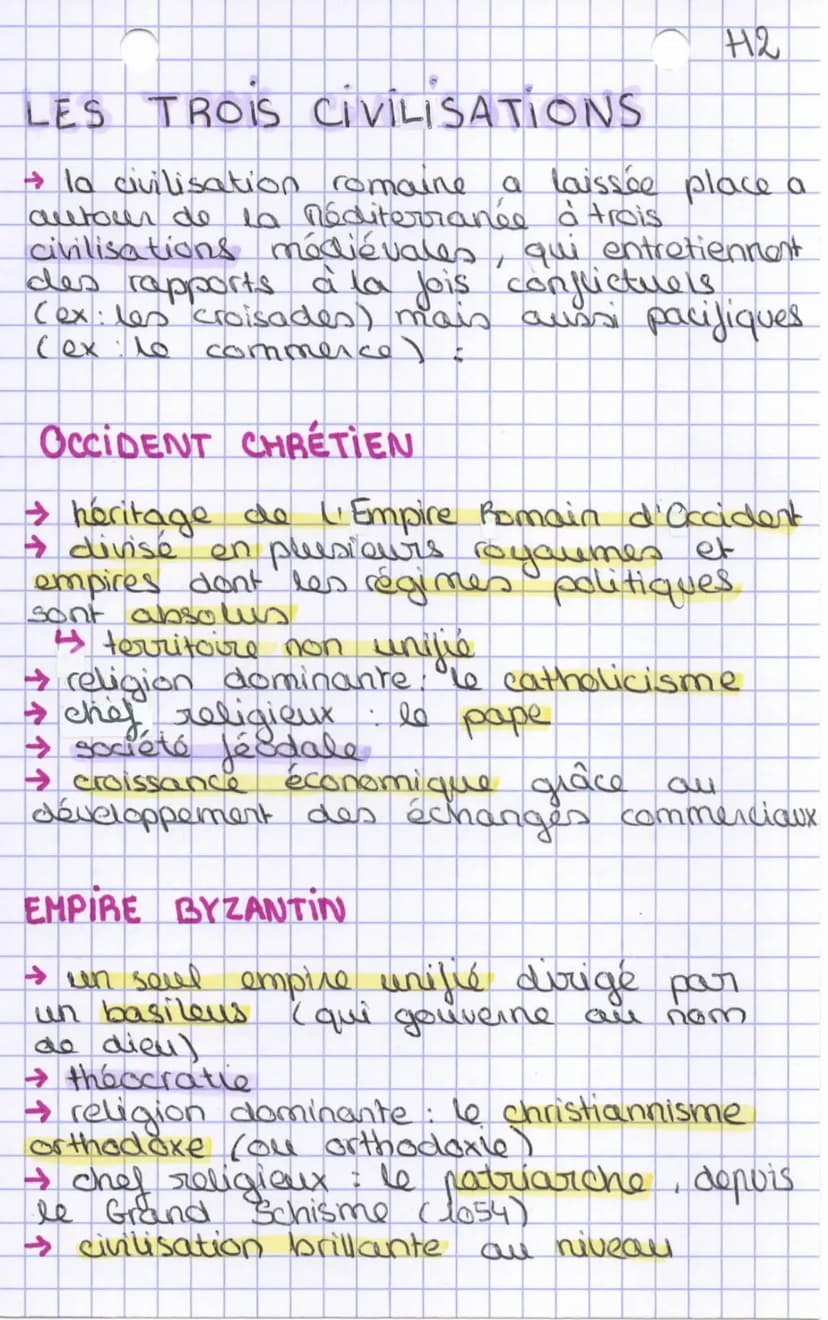 H2
LES TROIS CIVILISATIONS
→ la civilisation romaine a laissée place a
autour de la Méditerranée à trois
civilisations médiévales, qui entretiennent
des rapports à la fois conflictuels
(ex: les croisades) mais aussi pacifiques
(ex: le commerce) :
OCCIDENT CHRÉTIEN
→ héritage de l'Empire Romain d'Occident
→ divisé en plusieurs royaumes et
empires dont les régimes politiques
sont absolus
↳ territoire non unifié
→ religion dominante: le catholicisme
→ chef religieux : le pape
→ société féodale
→ croissance économique grâce au
développement des échanges commerciaux
EMPIRE BYZANTIN
→ un seul empire unifié dirigé par
un basileus (qui gouverne au nom
de dieu)
→ théocratie
→ religion dominante : le christiannisme
orthodoxe (ou orthodoxie)
→ chef religieux : le patriarche, depuis
le Grand Schisme (1054)
→ civilisation brillante au niveau